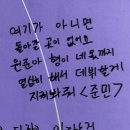 여기가 아니면
돌아갈 곳이 없어요
원준아 형이 네 몫까지
열심히 해서 데뷔할게
지켜봐줘 <준민>